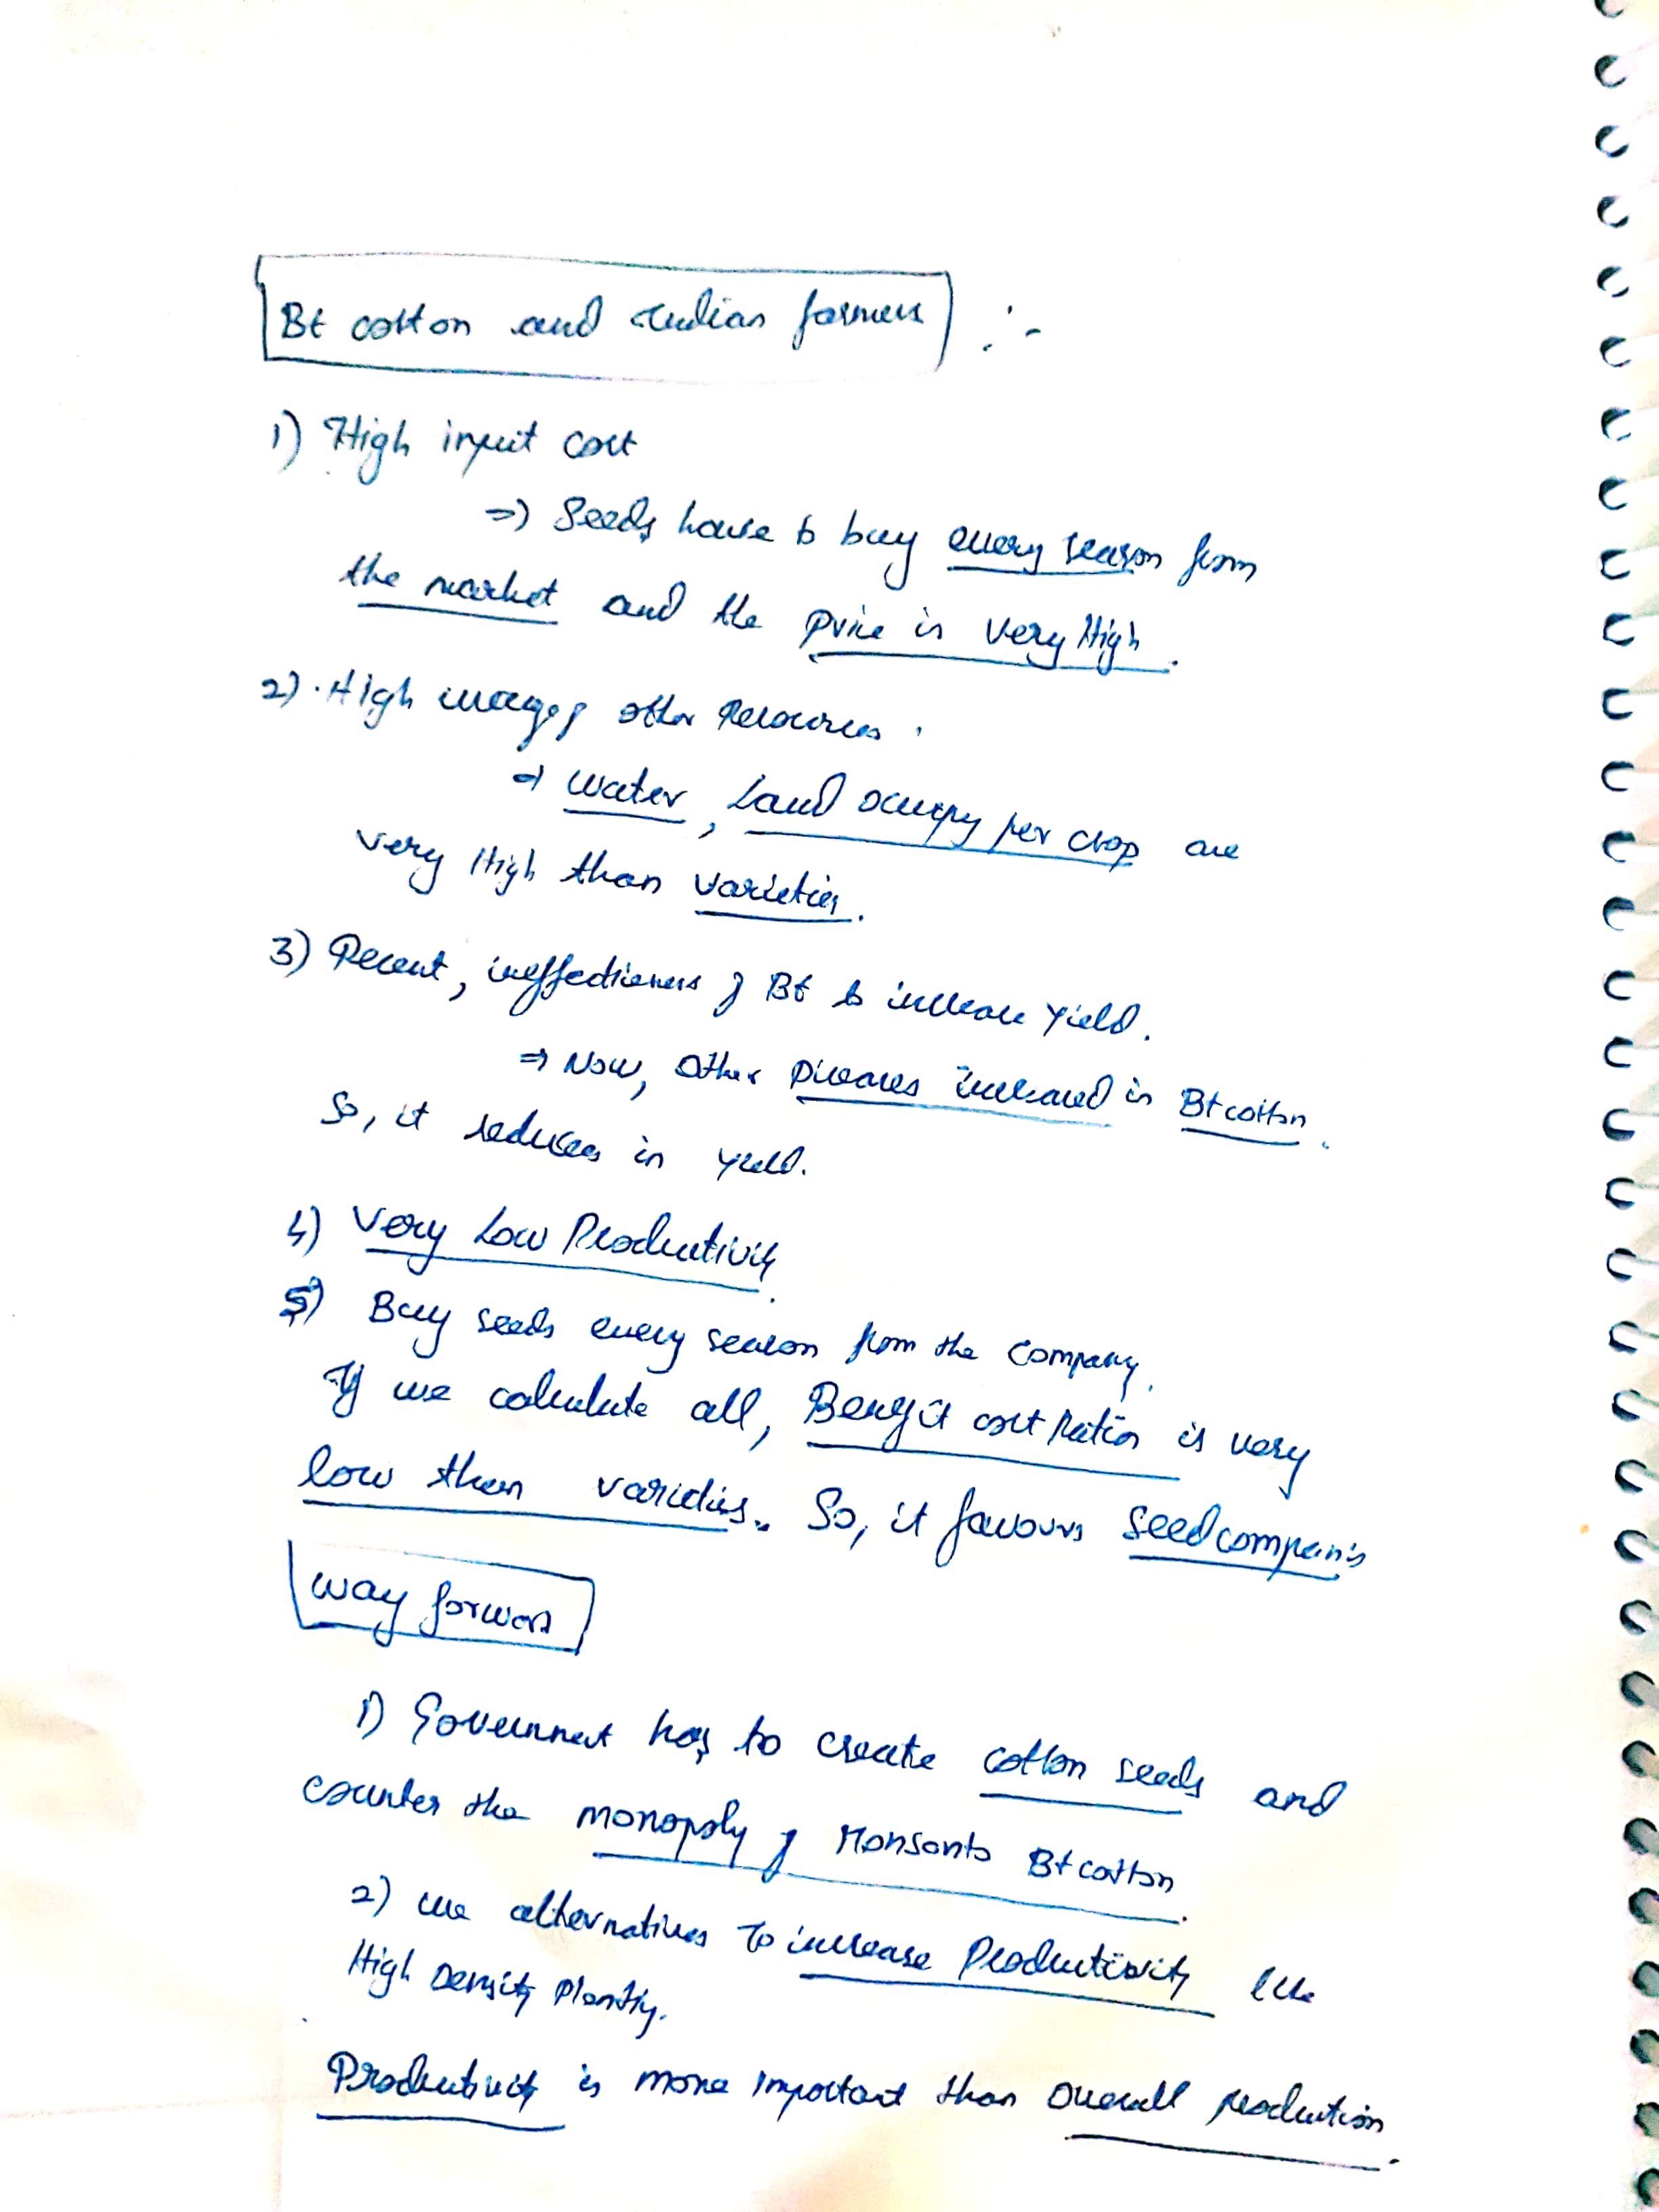 Bt cotton and Indian farmers :-
1) High input cost
=> Seeds have to buy every season from
the market and the price is very High.
2) High usage of other Resources.
=> water, Land occupy per crop are
very High than varieties.
3) Recent, ineffectiveness of Bt to increase Yield.
=> Now, other Diseases increased in Bt cotton.
So, it reduces in yield.
4) Very Low Productivity.
5) Buy seeds every season from the company.
If we calculate all, Benefit cost Ration is very
low than varieties. So, it favours seed companis
way forward
1) Government has to create cotton seeds and
counter the monopoly of Monsanto Bt cotton.
2) use alternatives to increase Productivity like
High Density Planting.
Productivity is more important than overall production.